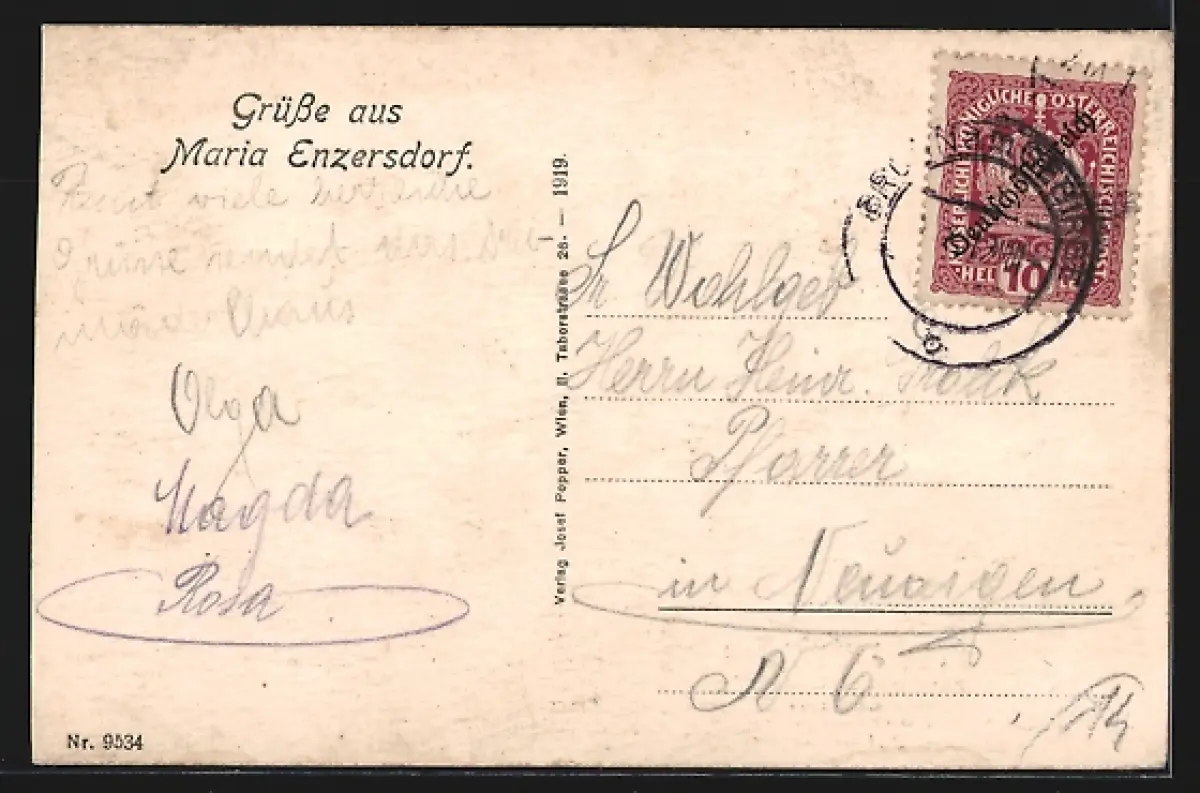 Grüße aus
Maria Enzersdorf.
viele herzliche
Grüsse sendet
Olga
Magda
Rosa
Nr. 9534
Verlag Josef Popper, Wien, II. Taborstrasse 26. — 1919.
KAISERLICHE KÖNIGLICHE ÖSTERREICHISCHE POST
Deutschösterreich
HEL 10
Sr Wohlgeb
Herrn Heinr.
Pfarrer
in Neuaigen
N. Ö.